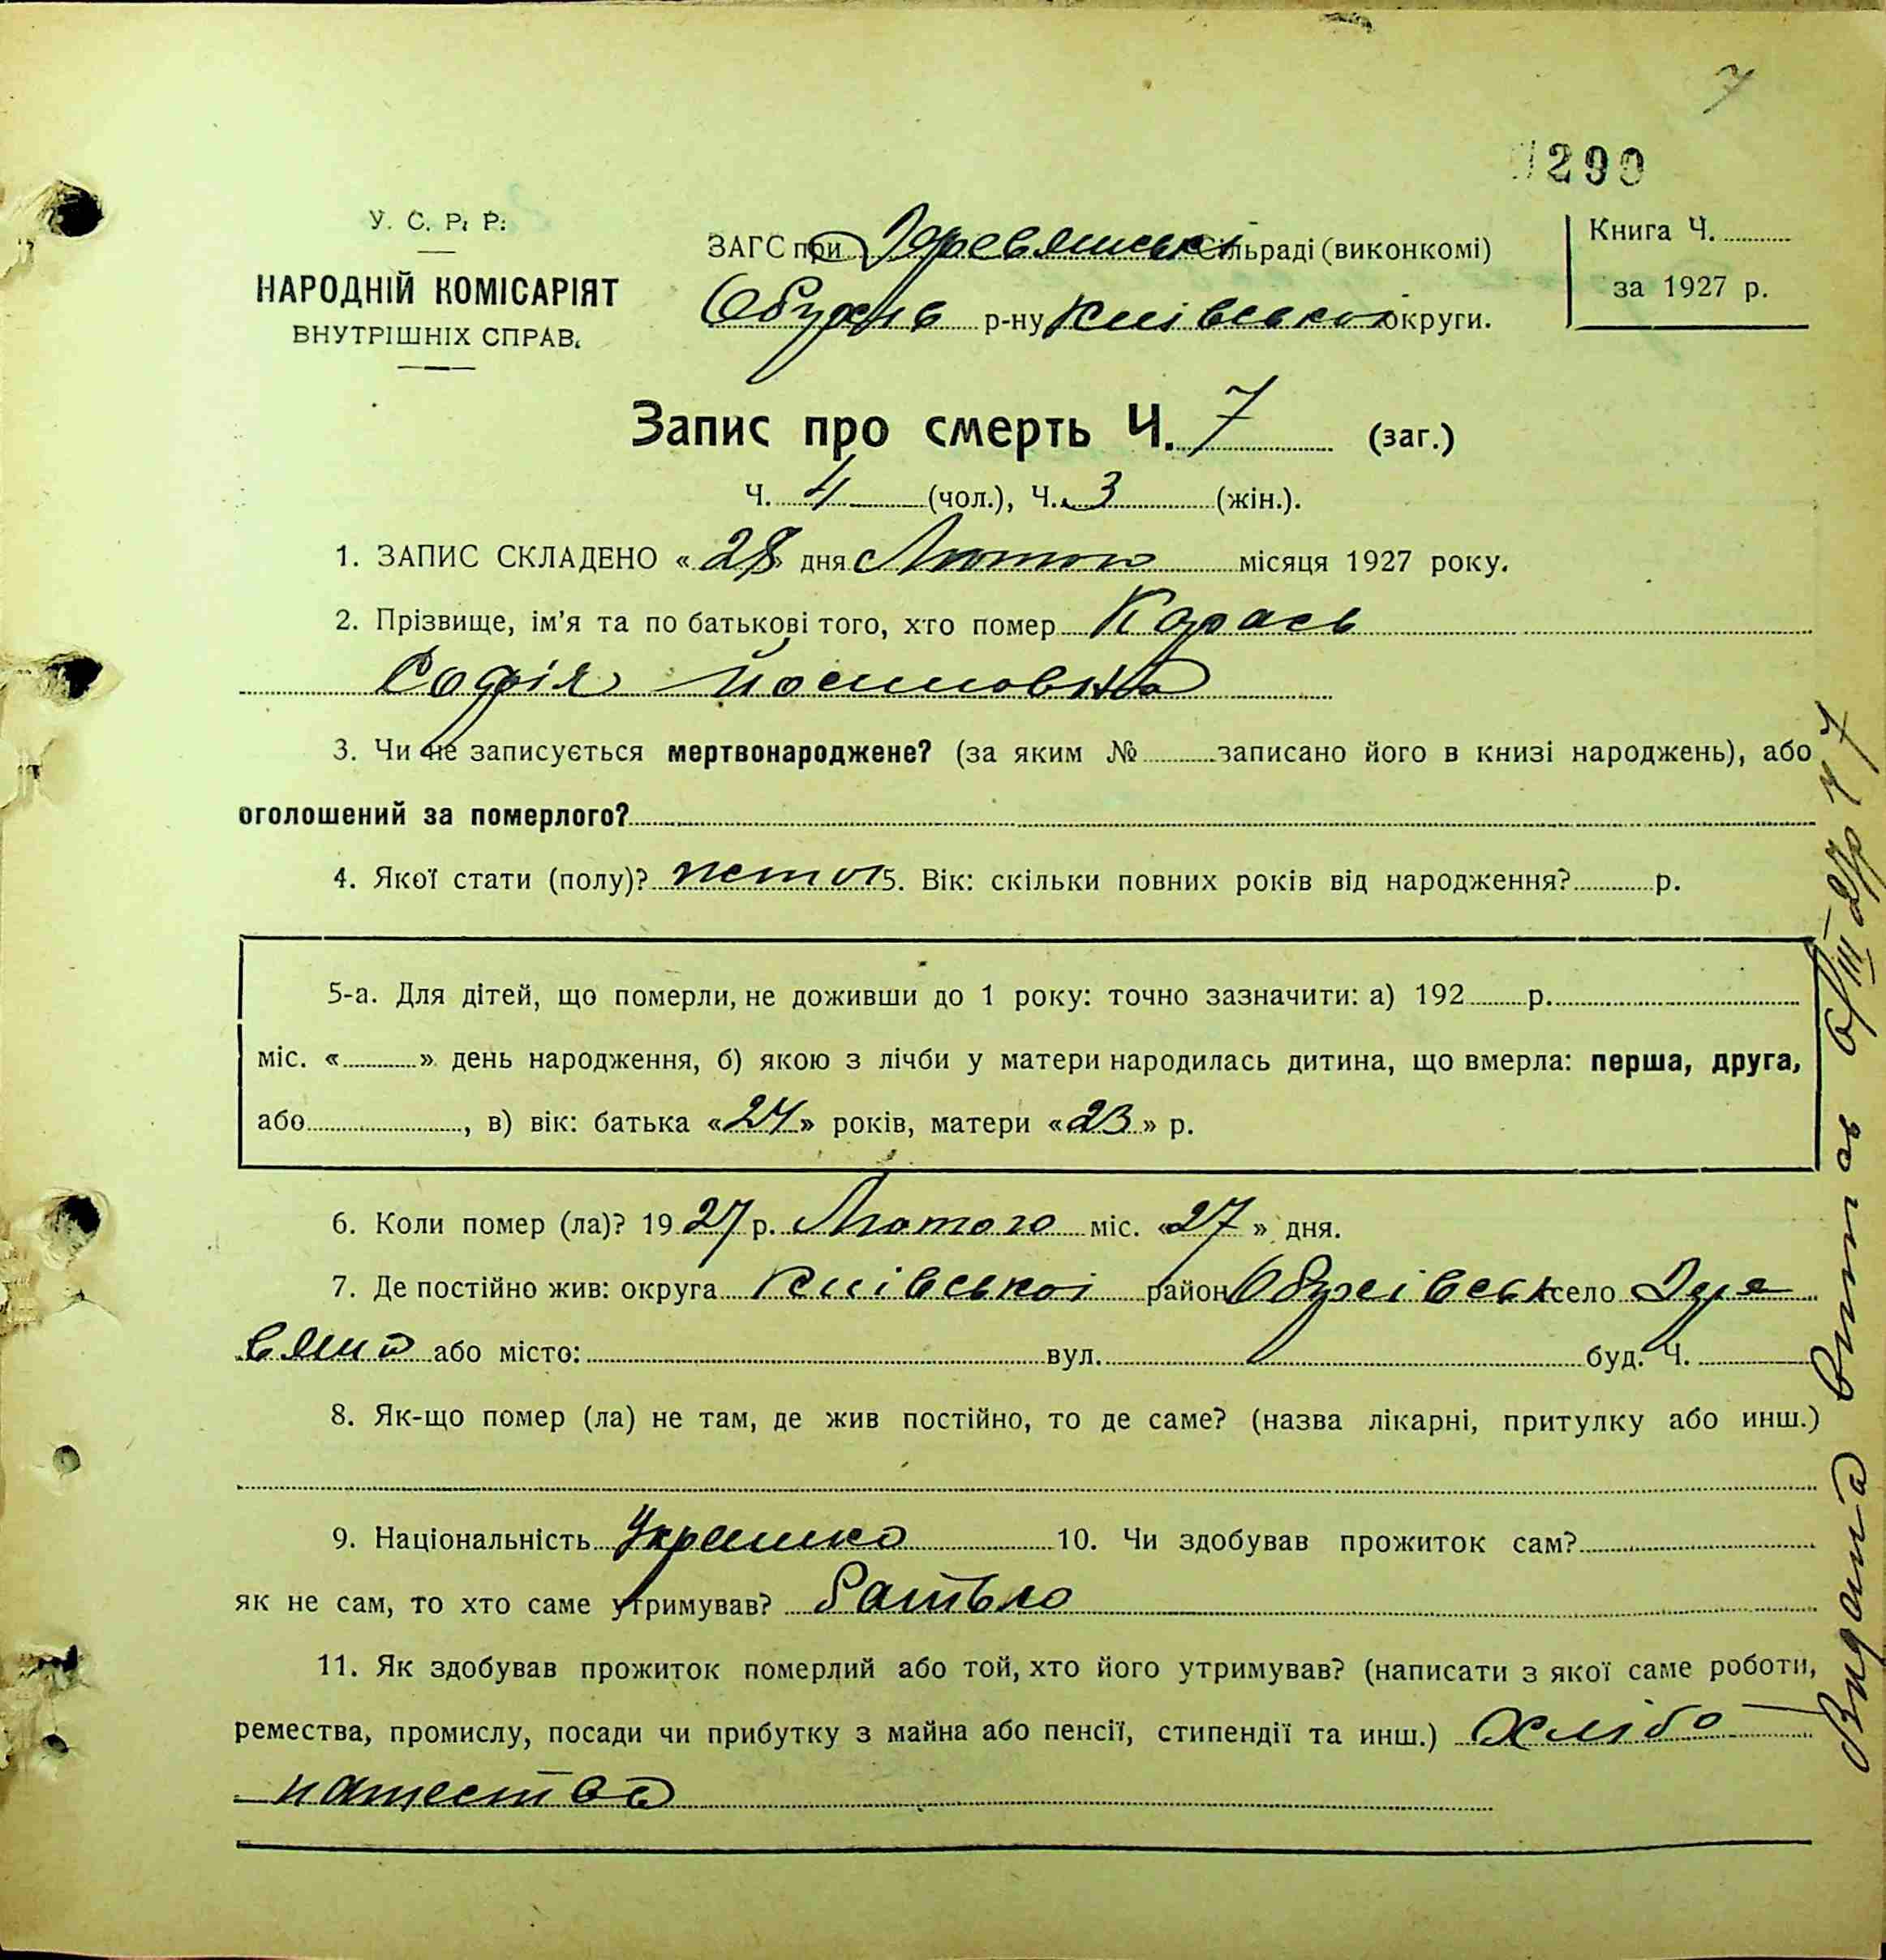 7
1299
У. С. Р. Р.
НАРОДНІЙ КОМІСАРІЯТ
ВНУТРІШНІХ СПРАВ.
ЗАГС при Деревянськ сільраді (виконкомі)
Обухів р-ну Київської округи.
Книга Ч.
за 1927 р.
Запис про смерть Ч. 7 (заг.)
Ч. 4 (чол.), Ч. 3 (жін.).
1. ЗАПИС СКЛАДЕНО «28» дня Лютого місяця 1927 року.
2. Прізвище, ім'я та по батькові того, хто помер Карась
Софія Йосиповна
3. Чи не записується мертвонароджене? (за яким № записано його в книзі народжень), або
оголошений за померлого?
4. Якої стати (полу)? жіноч 5. Вік: скільки повних років від народження? р.
5-а. Для дітей, що померли, не доживши до 1 року: точно зазначити: а) 192 р.
міс. « » день народження, б) якою з лічби у матери народилась дитина, що вмерла: перша, друга,
або , в) вік: батька «24» років, матери «23» р.
6. Коли помер (ла)? 1927 р. Лютого міс. «27» дня.
7. Де постійно жив: округа Київської район Обухівськ село Дере
вяна або місто: вул. буд. Ч.
8. Як-що помер (ла) не там, де жив постійно, то де саме? (назва лікарні, притулку або инш.)
9. Національність Українка 10. Чи здобував прожиток сам?
як не сам, то хто саме утримував? Батько
11. Як здобував прожиток померлий або той, хто його утримував? (написати з якої саме роботи,
ремества, промислу, посади чи прибутку з майна або пенсії, стипендії та инш.) Хлібо
пашество
Видана витяг 6/III 27р Ч 7